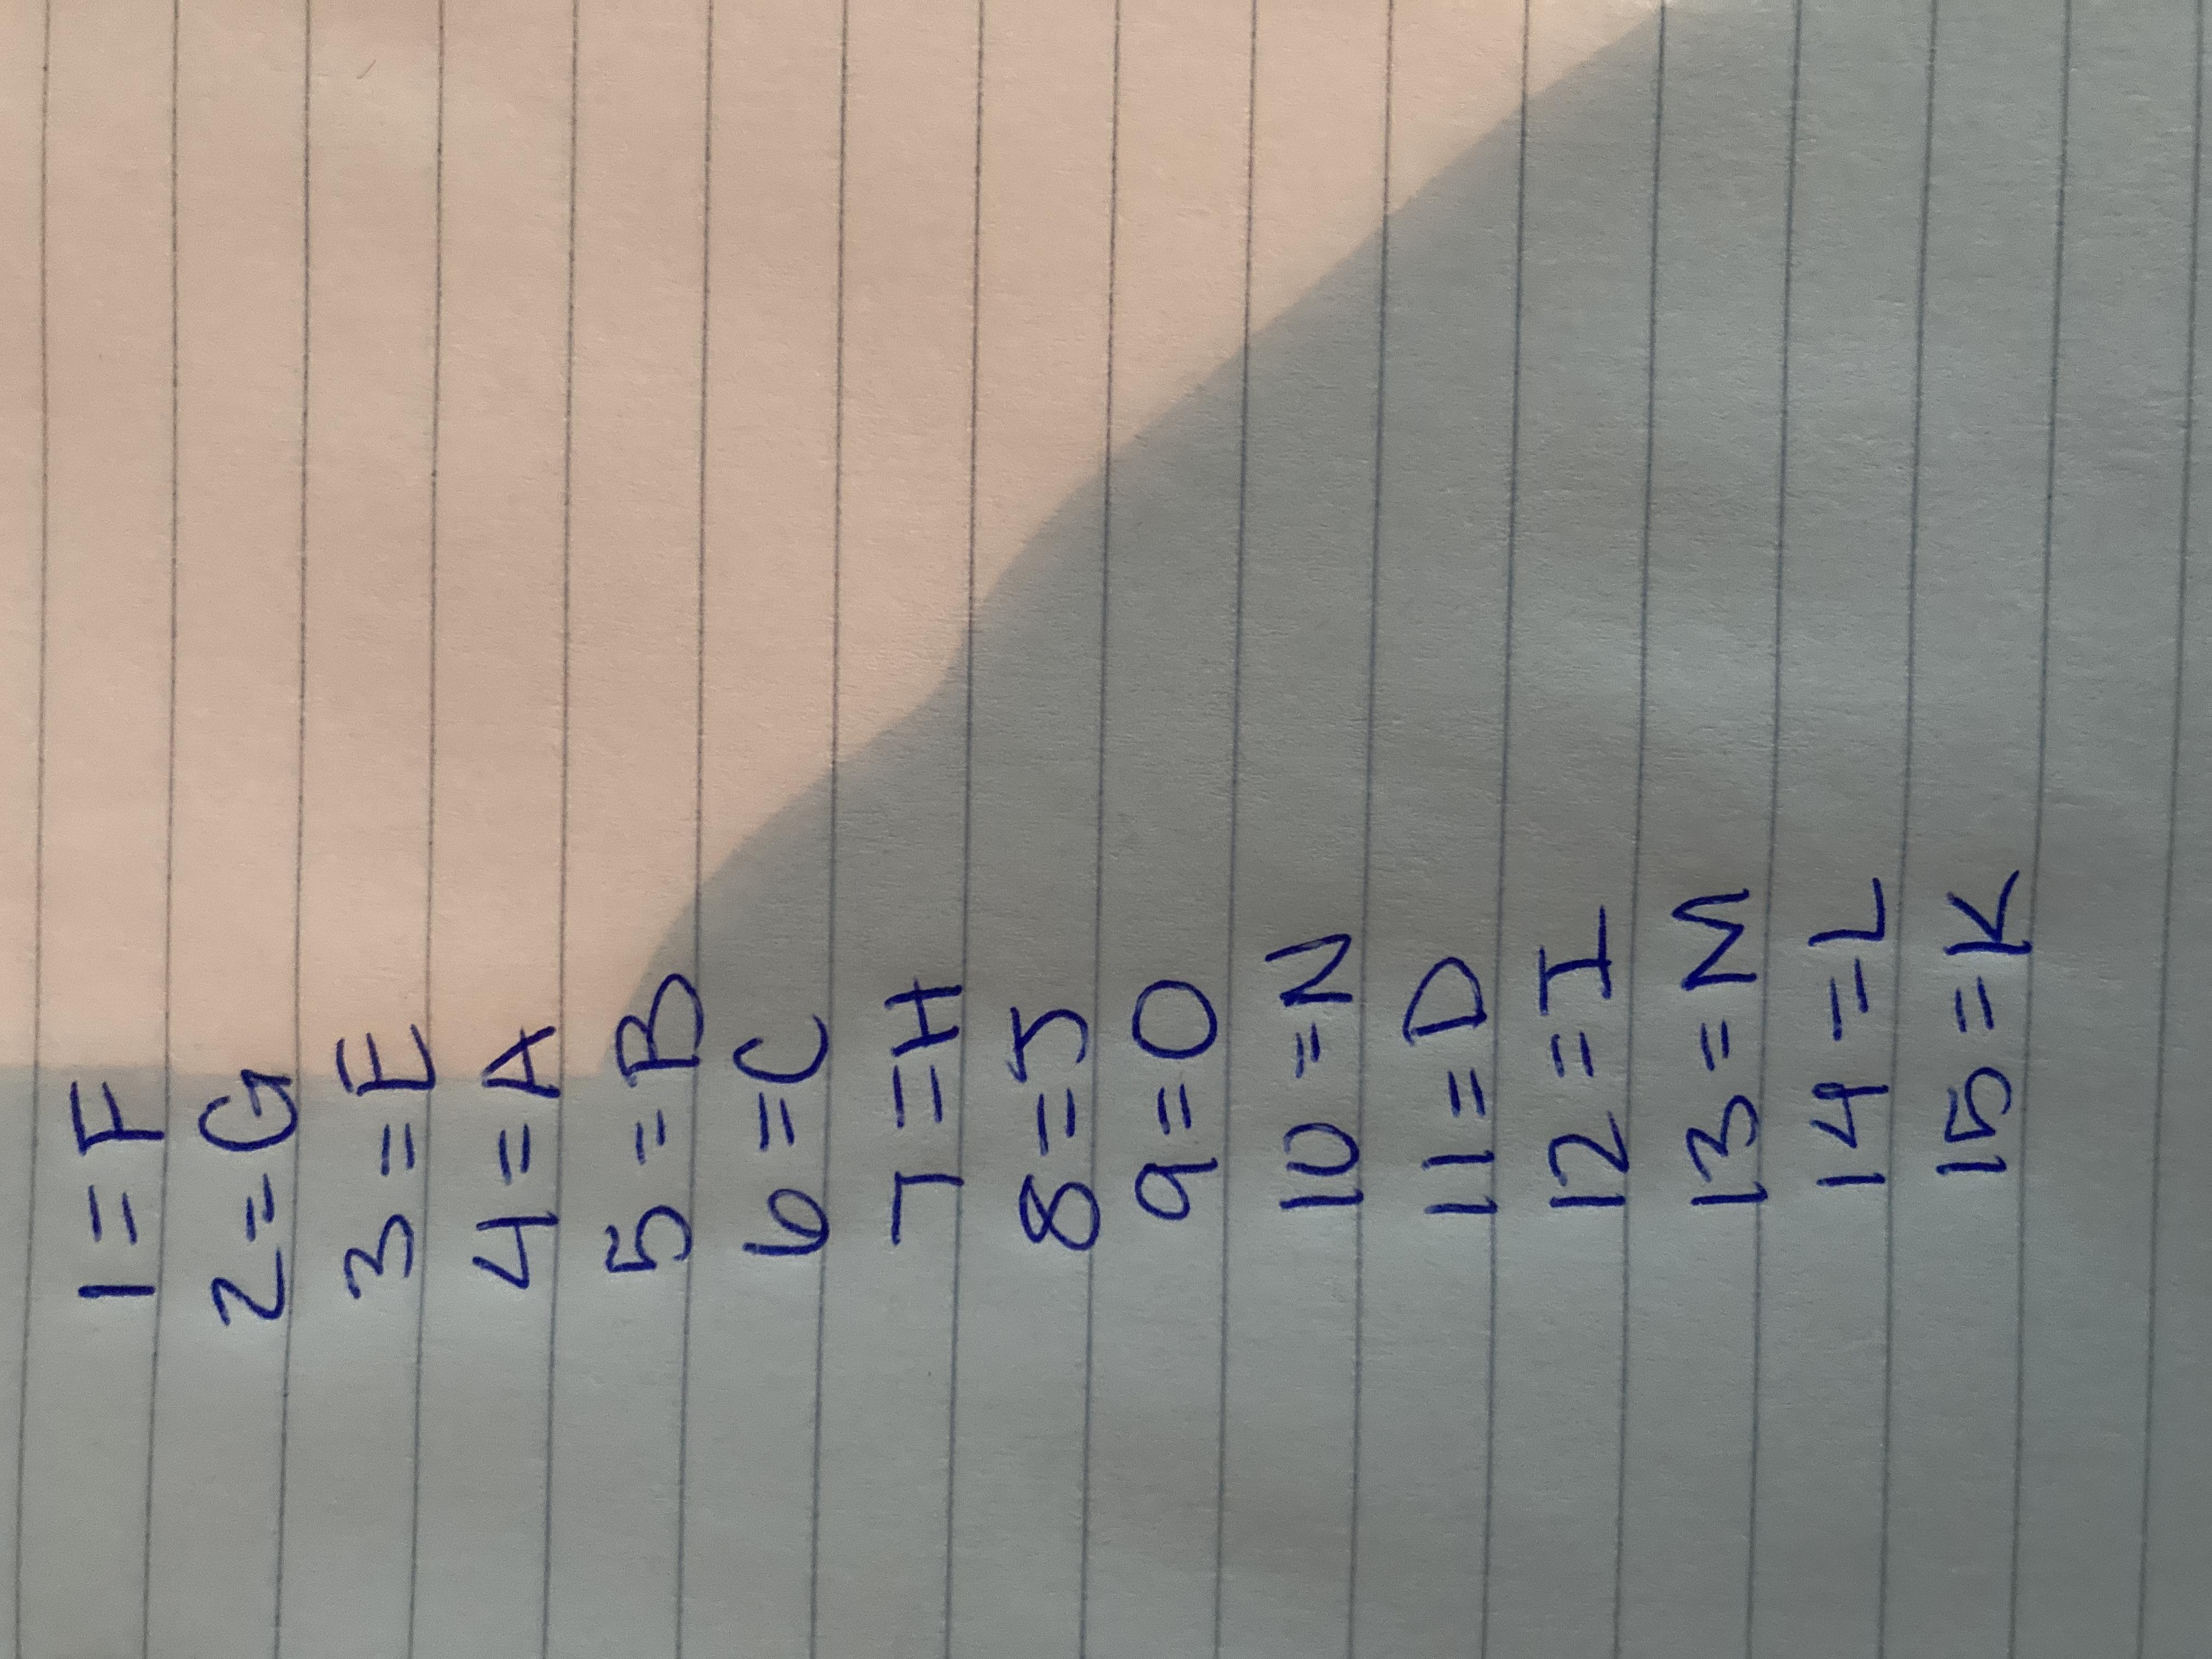 1 = F
2 = G
3 = E
4 = A
5 = B
6 = C
7 = H
8 = J
9 = O
10 = N
11 = D
12 = I
13 = M
14 = L
15 = K